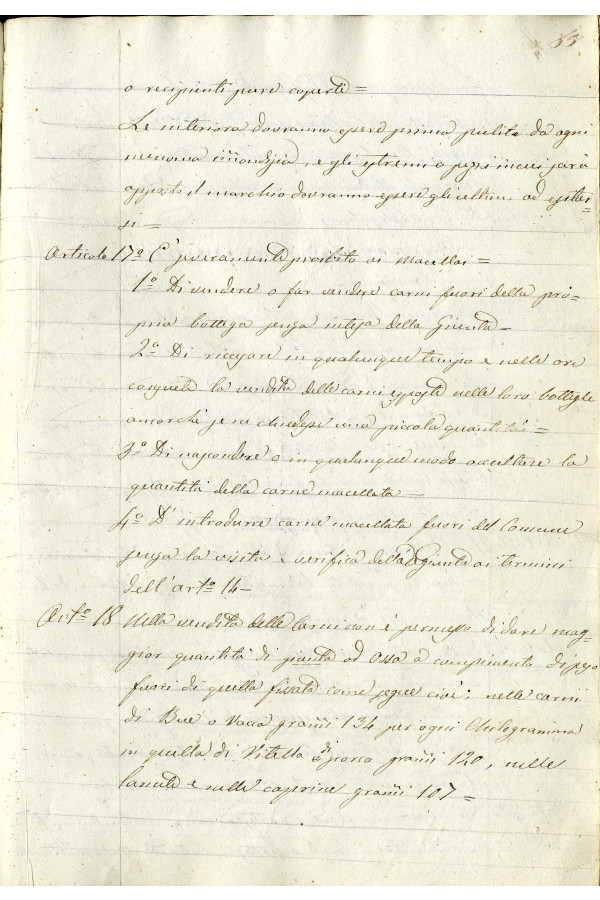 33
o recipienti pure coperti =
Le interiora dovranno essere prima pulite da ogni
menoma im̃ondizia, e gli estremi a cui sarà
apposto il marchio dovranno essere gli ultimi ad estar-
si =
Articolo 17º E' severamente proibito ai Macellai =
1º Di vendere o far vendere carni fuori della pro-
pria bottega senza intesa della Giunta =
2º Di ricusare in qualunque tempo e nelle ore
consuete la vendita delle carni esposte nelle loro botteghe
ancorchè se ne chiedesse una piccola quantità =
3º Di nascondere o in qualunque modo occultare la
quantità della carne macellata =
4º D' introdurre carne macellata fuori del Comune
senza la visita e verifica della Giunta ai termini
dell' artº 14 =
Artº 18 Nella vendita delle Carni non è permesso di dare mag-
gior quantità di giunta od Ossa a compimento di peso
fuori di quella fissata come segue cioè; nelle carni
di Bue o Vacca gram̃i 134 per ogni Chilogramma
in quella di Vitella e di porco gram̃i 120, nelle
lanute e nelle caprine gram̃i 107 =